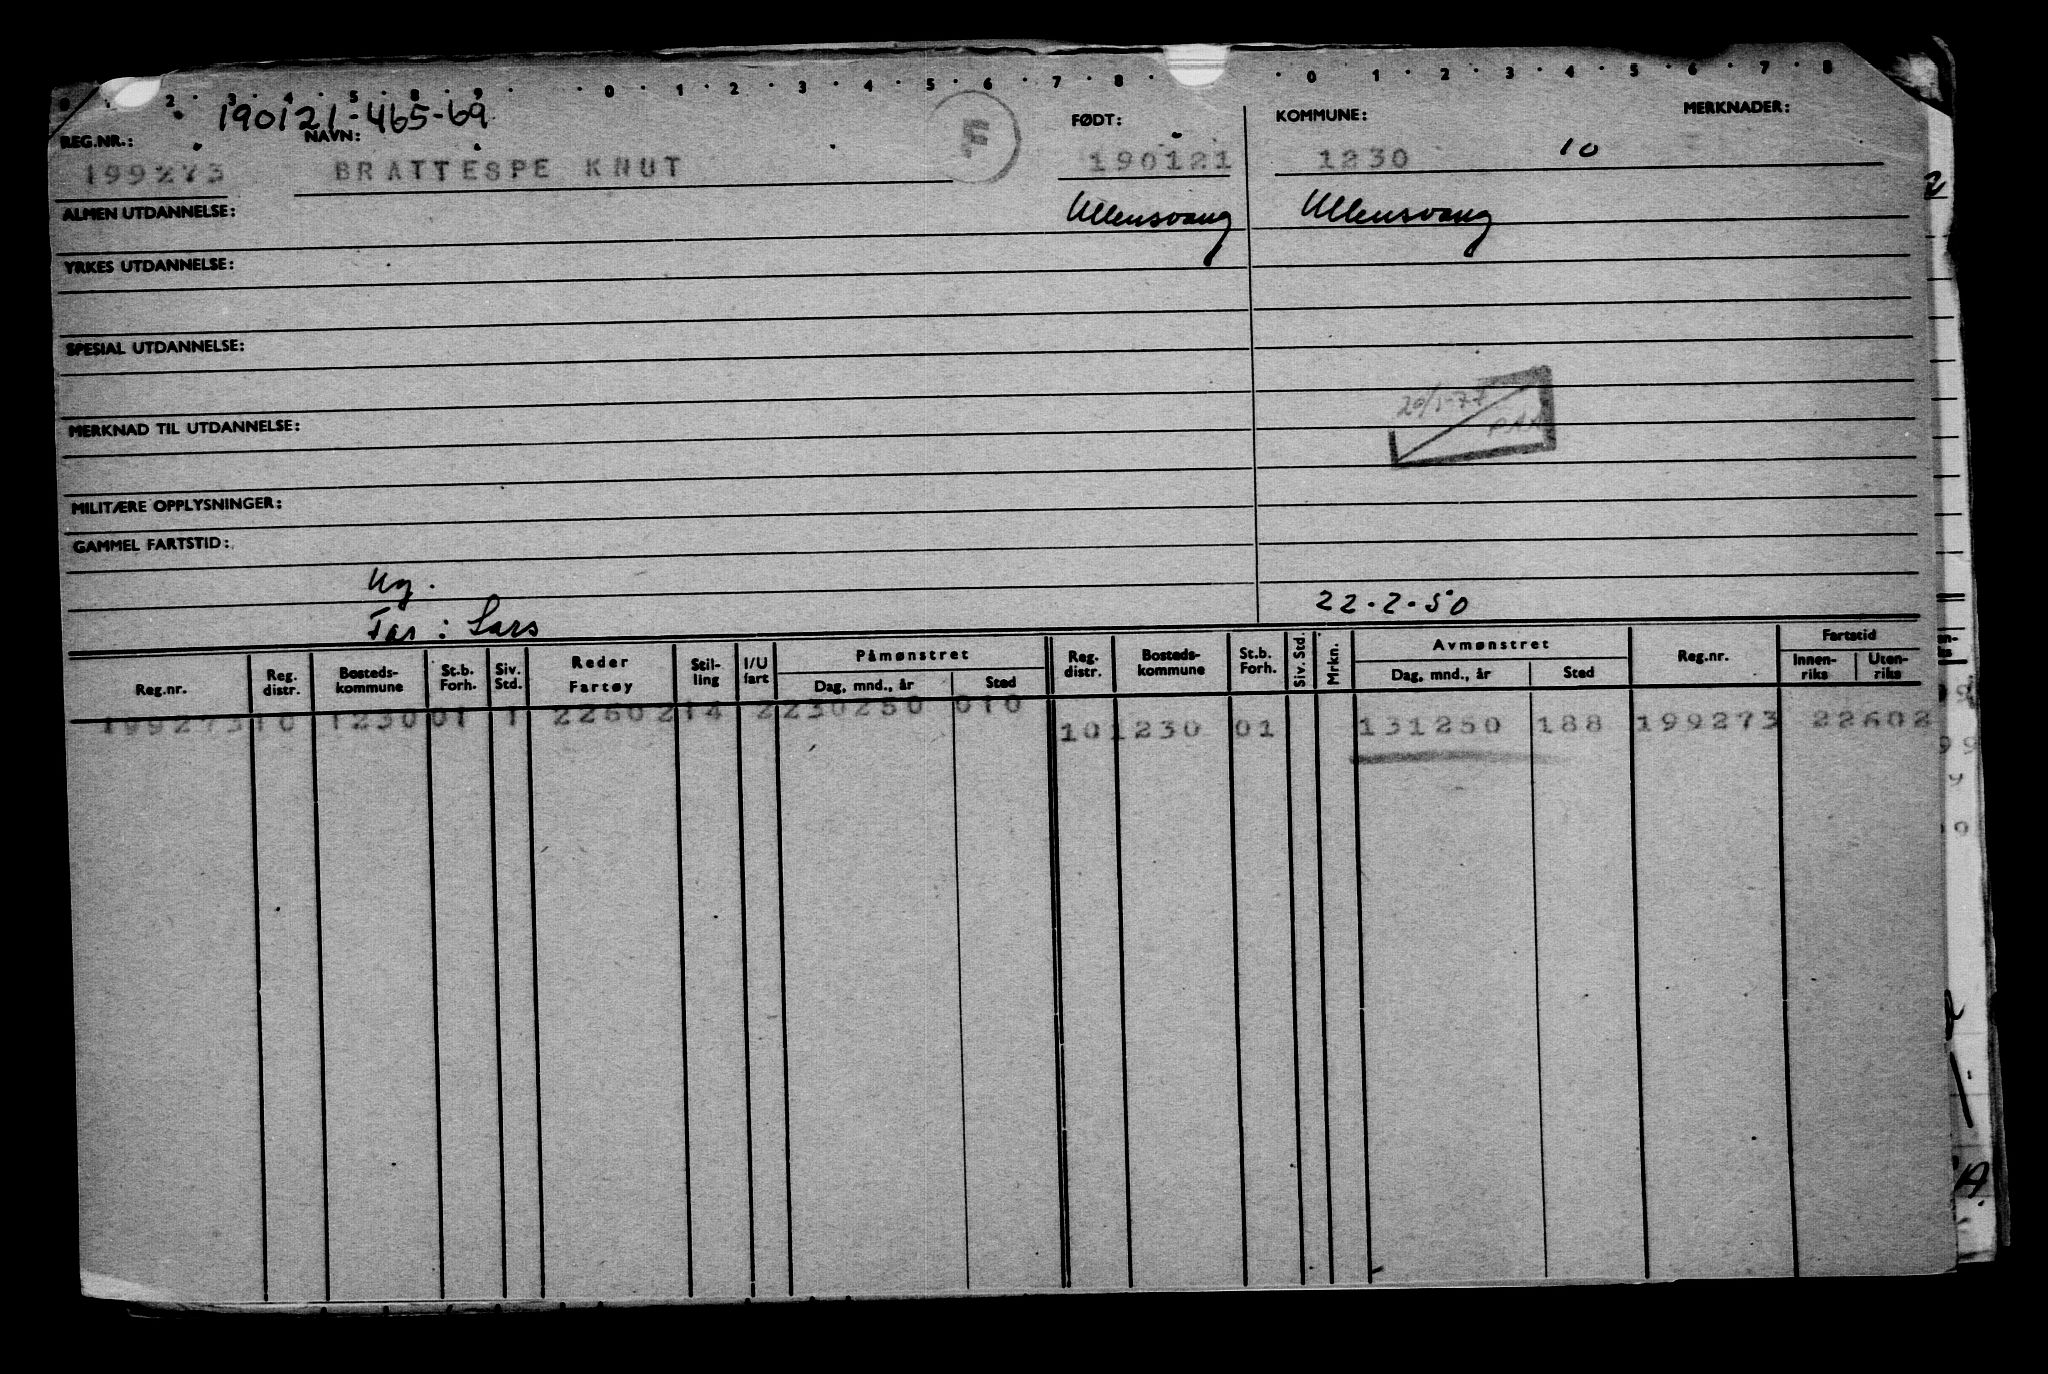 2 · 3 · 4 · 5 · 8 · 9 · · 0 · 1 · 2 · 3 · 4 · 5 · 6 · 7 · 8 · · 0 · 1 · 2 · 3 · 4 · 5 · 6 · 7 · 8
190121-465-69
REG.NR.: NAVN: FØDT: KOMMUNE: MERKNADER:
199273 BRATTESPE KNUT F 190121 1230 10
ALMEN UTDANNELSE: Ullensvang Ullensvang
YRKES UTDANNELSE:
SPESIAL UTDANNELSE:
20/1-77
MERKNAD TIL UTDANNELSE:
MILITÆRE OPPLYSNINGER:
GAMMEL FARTSTID:
Ug.
Far: Lars 22.2.50
Reg.nr. Reg. distr. Bosteds-kommune St.b. Forh. Siv. Std. Reder Fartøy Stil-ling I/U fart Påmønstret Dag, mnd., år Sted Reg. distr. Bosteds-kommune St.b. Forh. Siv. Std. Mrkn. Avmønstret Dag, mnd., år Sted Reg.nr. Fartstid Innen-riks Uten-riks
199273 10 1230 01 1 22602 14 2 230250 010 10 1230 01 131250 188 199273 22602